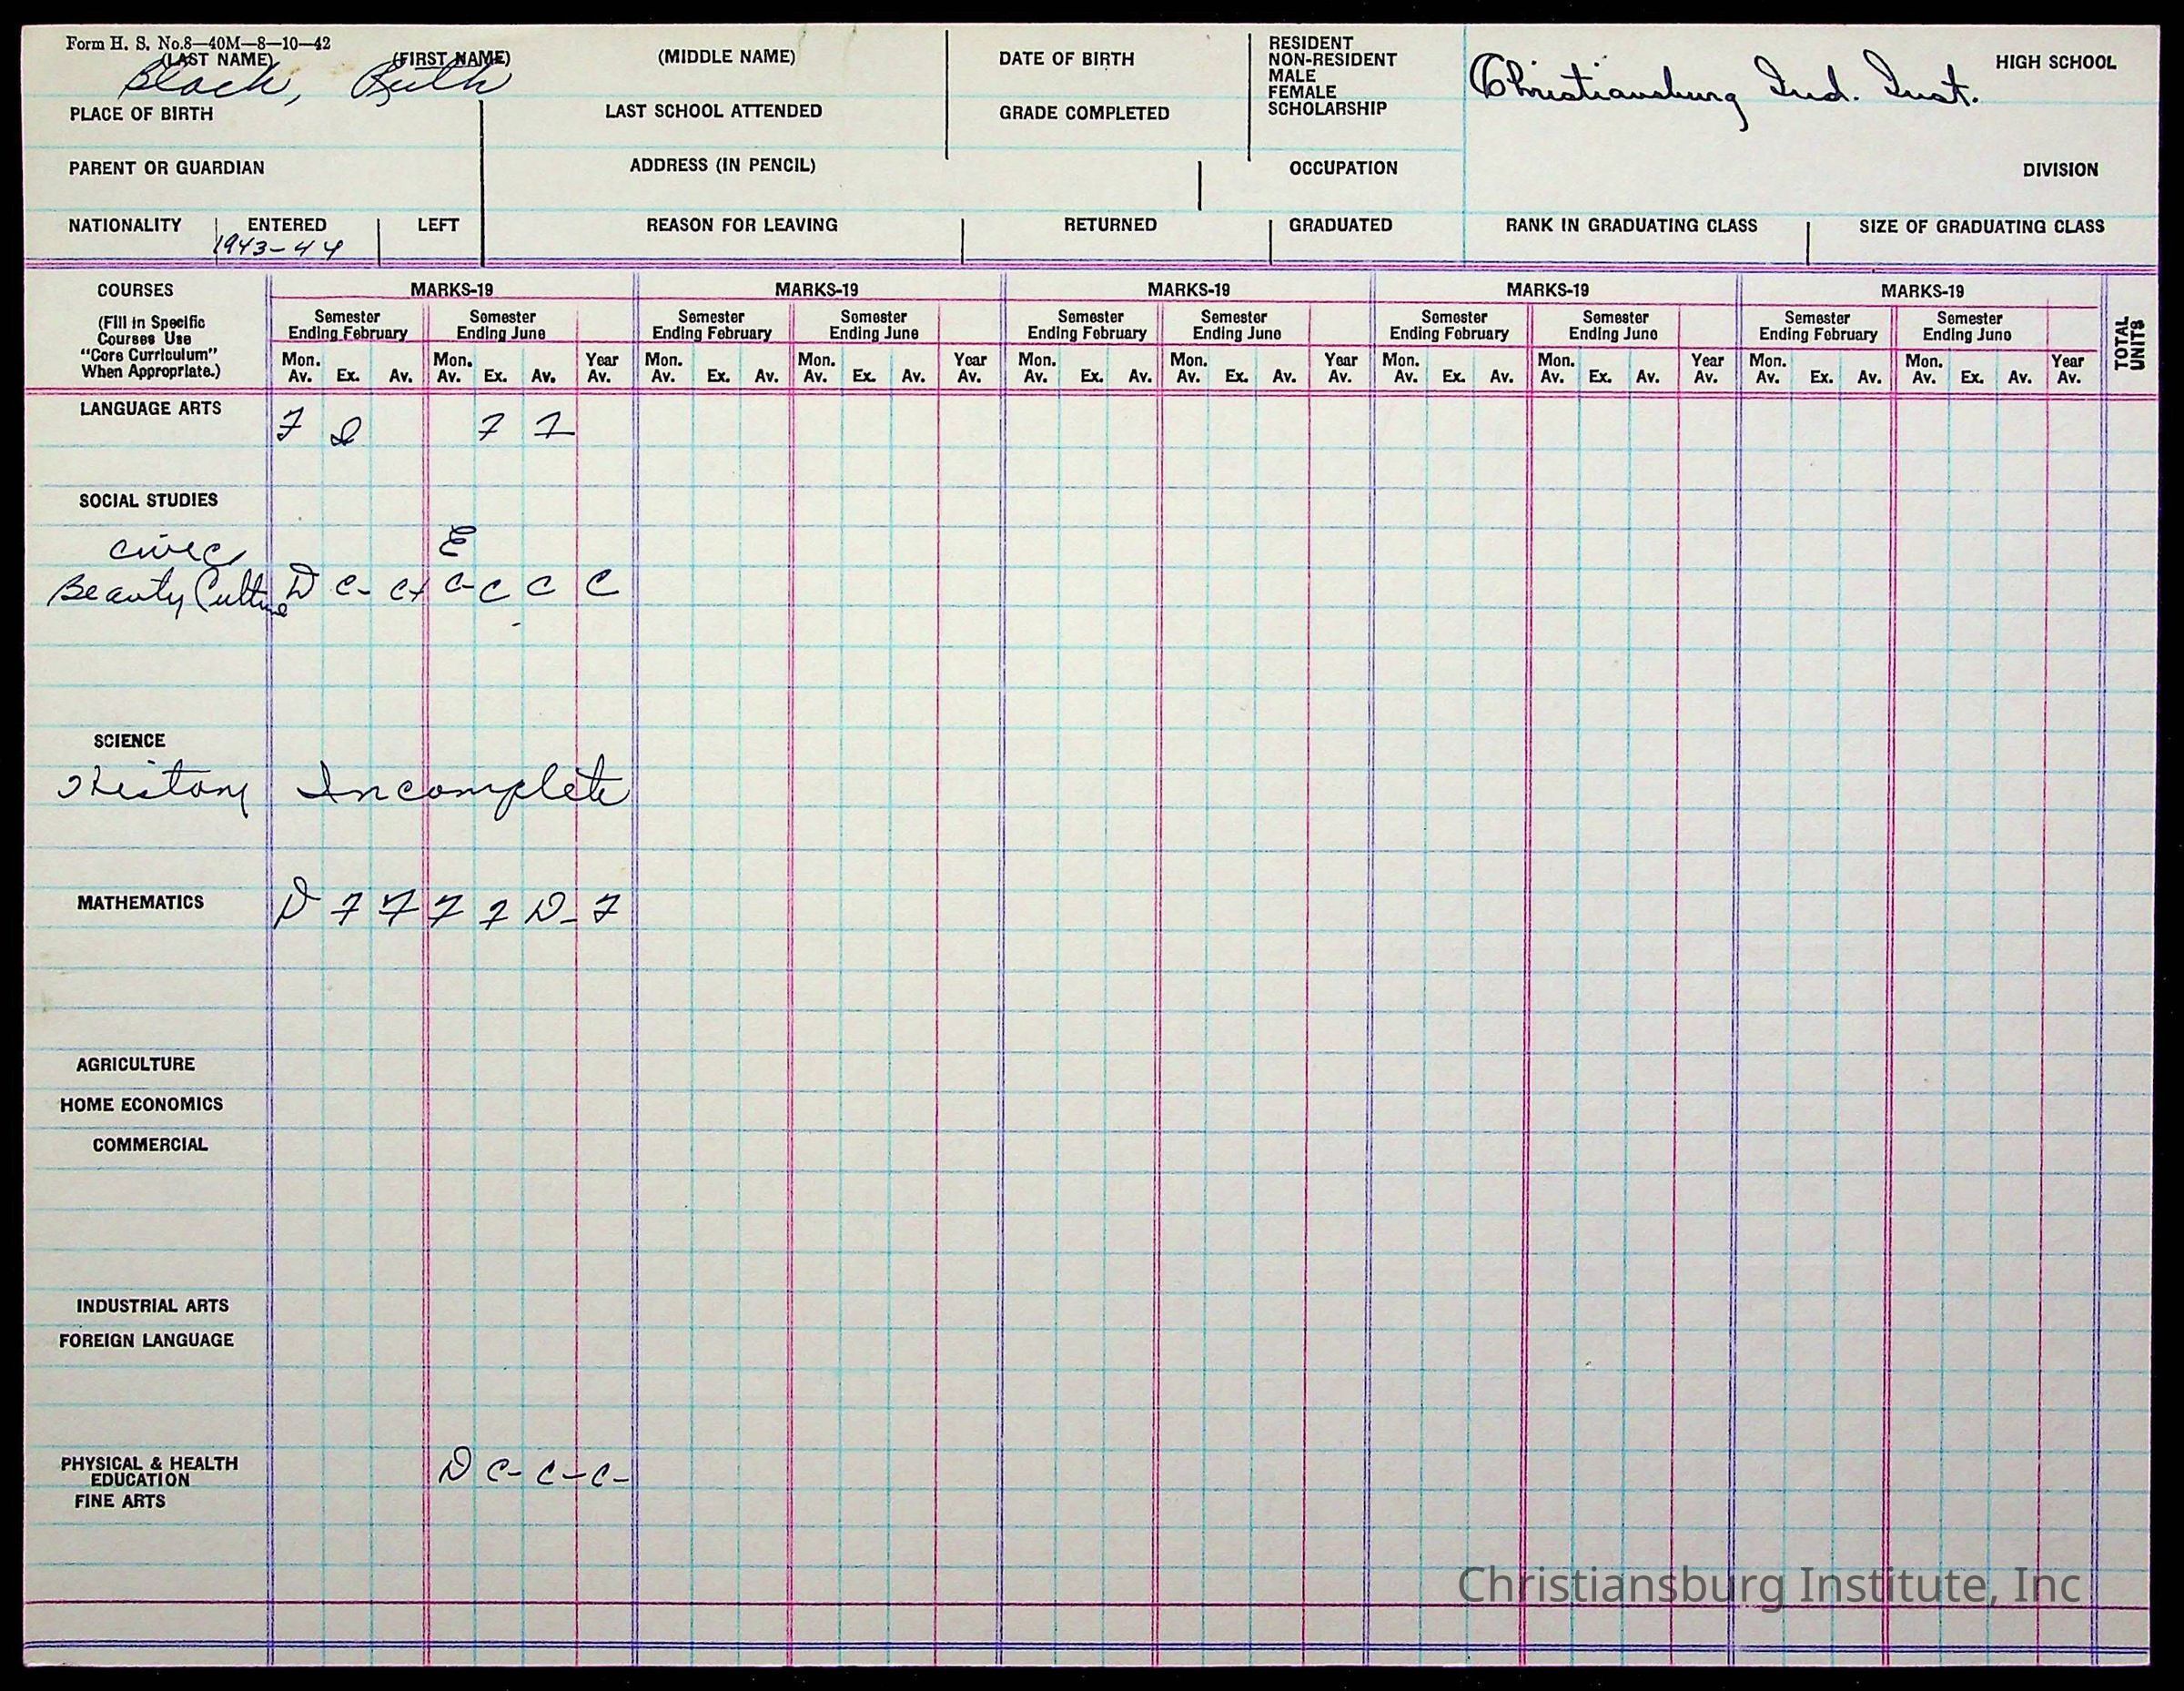 Form H. S. No.8—40M—8—10—42
(LAST NAME) (FIRST NAME) (MIDDLE NAME) DATE OF BIRTH
Black, Ruth
RESIDENT
NON-RESIDENT
MALE
FEMALE
SCHOLARSHIP
Christiansburg Ind. Inst. HIGH SCHOOL
PLACE OF BIRTH LAST SCHOOL ATTENDED GRADE COMPLETED
PARENT OR GUARDIAN ADDRESS (IN PENCIL) OCCUPATION DIVISION
NATIONALITY ENTERED LEFT REASON FOR LEAVING RETURNED GRADUATED RANK IN GRADUATING CLASS SIZE OF GRADUATING CLASS
1943-44
COURSES MARKS-19 MARKS-19 MARKS-19 MARKS-19 MARKS-19
(Fill in Specific
Courses Use
"Core Curriculum"
When Appropriate.)
Semester Semester Semester Semester Semester Semester Semester Semester Semester Semester
Ending February Ending June Ending February Ending June Ending February Ending June Ending February Ending June Ending February Ending June
Mon. Mon. Year Mon. Mon. Year Mon. Mon. Year Mon. Mon. Year Mon. Mon. Year
Av. Ex. Av. Av. Ex. Av. Av. Av. Ex. Av. Av. Ex. Av. Av. Av. Ex. Av. Av. Ex. Av. Av. Av. Ex. Av. Av. Ex. Av. Av. Av. Ex. Av. Av. Ex. Av. Av.
TOTAL
UNITS
LANGUAGE ARTS F F F
SOCIAL STUDIES
Civics E
Beauty Culture D C- C+ C- C C C
SCIENCE
History Incomplete
MATHEMATICS D F F F F D- F
AGRICULTURE
HOME ECONOMICS
COMMERCIAL
INDUSTRIAL ARTS
FOREIGN LANGUAGE
PHYSICAL & HEALTH
EDUCATION D C- C- C-
FINE ARTS
Christiansburg Institute, Inc